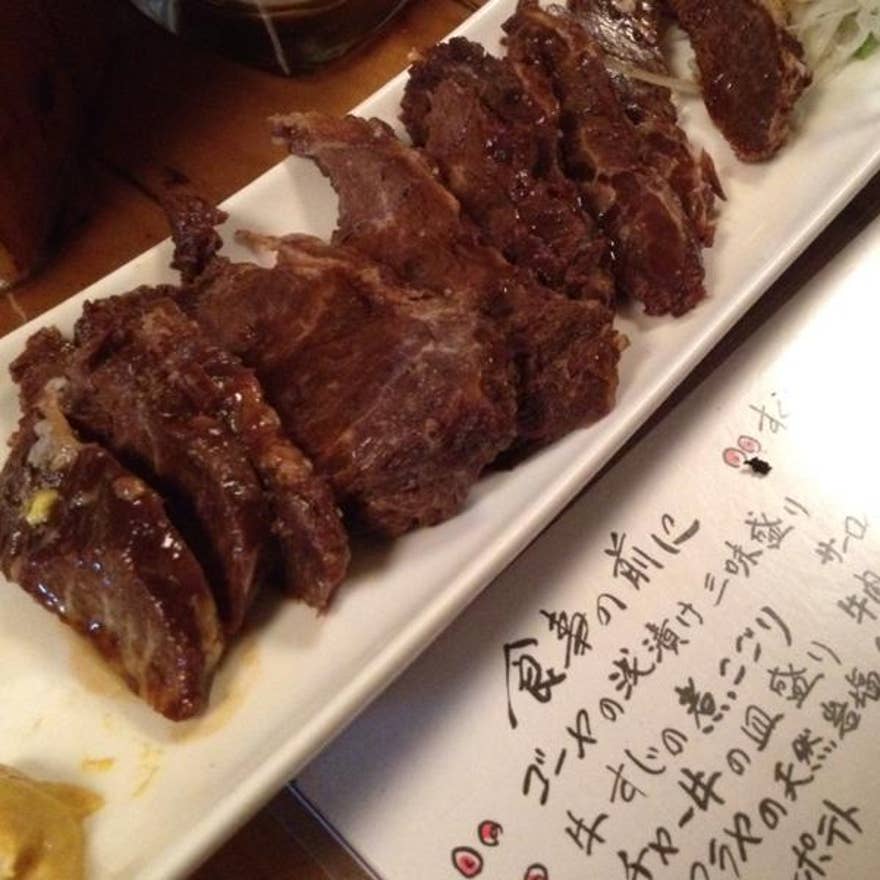 食事の前に
ゴーヤの浅漬け三味盛り
牛すじの煮こごり
チャー牛の皿盛り
の天然岩塩
ポテト
サーロ
牛肉
すじ